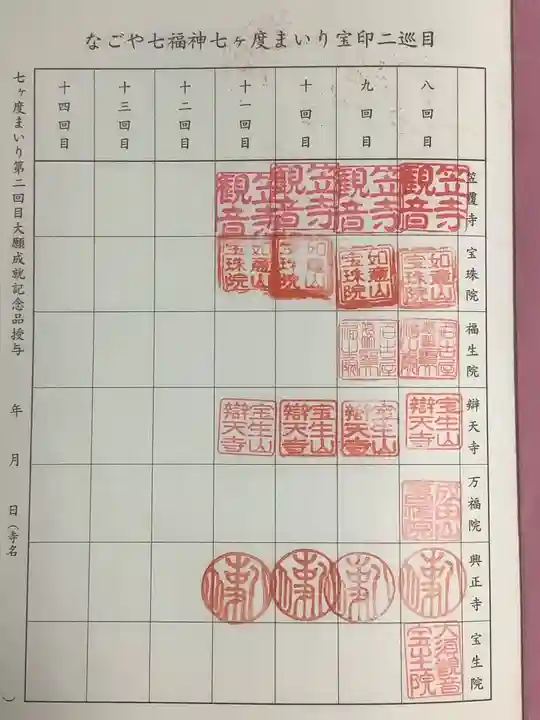 なごや七福神七ヶ度まいり宝印二巡目
八回目
九回目
十回目
十一回目
十二回目
十三回目
十四回目
笠覆寺
笠寺観音
笠寺観音
笠寺観音
笠寺観音
宝珠院
如意山宝珠院
如意山宝珠院
如意山宝珠院
如意山宝珠院
福生院
辯天寺
宝生山辯天寺
宝生山辯天寺
宝生山辯天寺
宝生山辯天寺
万福院
成田山萬福院
興正寺
宝生院
大須観音宝生院
七ヶ度まいり第二回目大願成就記念品授与 年 月 日(寺名 )